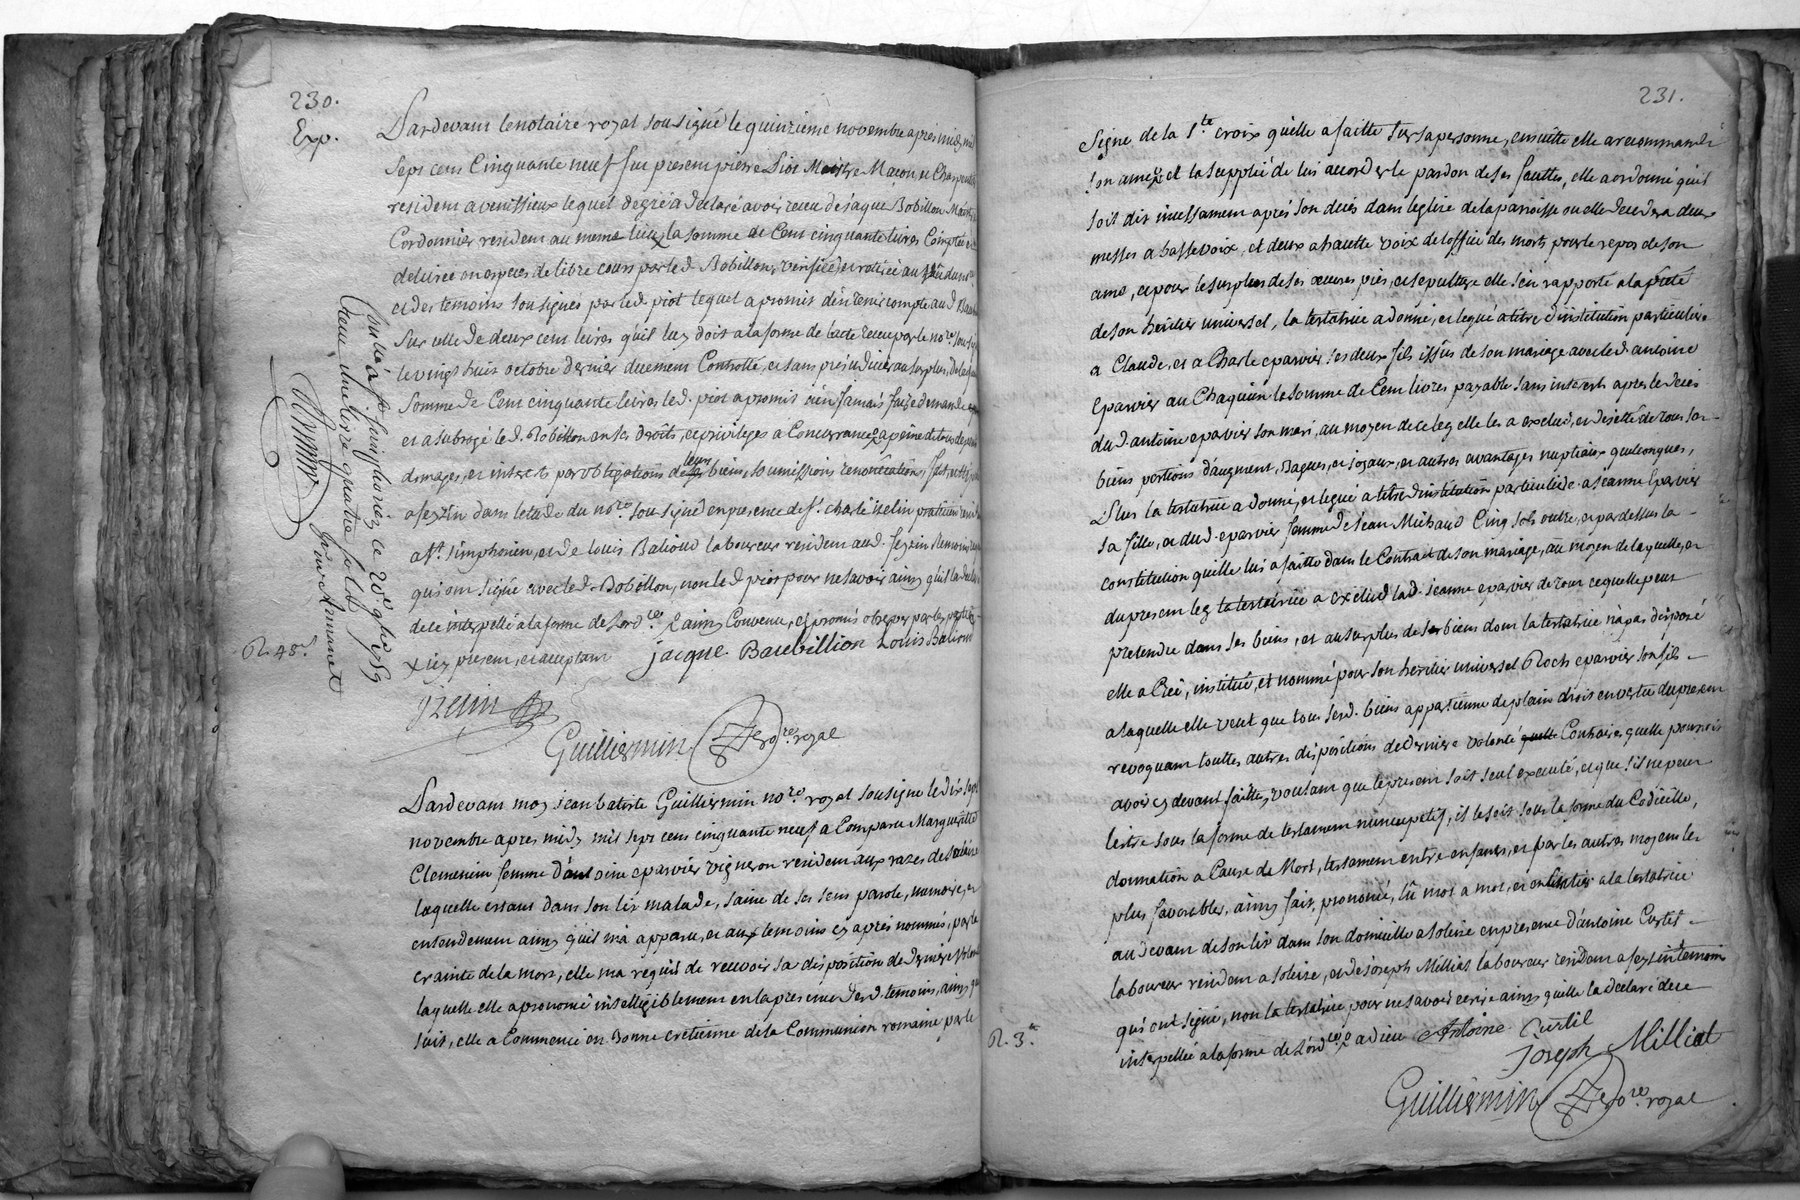 230.
Exp.
Pardevant le notaire royal sousigné le quinzieme novembre apres midy mil
sept cens Cinquante neuf fut present pierre piot Maitre Macon et Charpentier
resident a venissieux lequel degré a declaré avoir receu de jaque Bobillon Maitre
Cordonnier resident au meme lieu x la somme de Cent cinquante livres Comptée et
delivrée en especes de libre cours par led. Bobillon, verifiée et retirée au veu dud. nre
et des temoins sousignés par led. piot lequel a promis d'en tenir compte aud. Bobillon
sur celle de deux cent livres qu'il luy doit a la forme de l'acte receu par le nore. sousigné
le vingt huit octobre dernier duement Controllé, et sans prejudicier au surplus, de laquelle
somme de Cent cinquante livres led. piot a promis n'en jamais faire demande
et a subrogé led. Bobillon en ses droits, et privileges a Concurrance, a peine de tous depens
domages, et interets par obligations de leurs biens, soumissions renonciations, fait et
a seyzin dans l'etude du nore. sousigné en presence de sr. charle izelin praticien resident
a st. simphorien, et de louis Baliond laboureur resident aud. seyzin temoins
qui ont signé avec led. Bobillon, non led. piot pour ne savoir ainsy qu'il l'a declaré
de ce interpellé a la forme de l'ordce. & ainsy Convenu, et promis observer par les parties
x icy present, et acceptant jacque Baubillion Louis Baliond
izelin
Guilliermin nore. royal
Controllé a st. simphorien ce 20e. 9bre 1759
Receu une livre quatre sols
R. 48s.
Pardevant moy jean batiste Guilliermin nore. royal sousigné le dix sept
novembre apres midy mil sept cens cinquante neuf a Comparu Margueritte
Clemenin femme d'antoine eparvier vigneron resident aux razes de solaize
laquelle estant dans son lit malade, saine de ses sens parole, memoire, et
entendement ainsy qu'il m'a apparu, et aux temoins cy après nommés, par la
crainte de la mort, elle m'a requis de recevoir sa disposition de derniere volonté
laquelle elle a prononcé intelligiblement en la presence desd. temoins, ainsy que
suit, elle a Commencé en Bonne cretienne de la Communion romaine par le
231.
signe de la Ste. croix qu'elle a faitte sur sa personne, ensuitte elle a recommandé
son ame et l'a supplié de lui accorder le pardon de ses fauttes, elle a ordonné qu'il
soit dit incessament après son decés dans l'eglise de la parroisse ou elle decedera deux
messes a basse voix, et deux a hautte voix de l'office des morts pour le repos de son
ame, et pour le surplus de ses œuvres pies, et sepulture elle s'en rapporte a la pieté
de son heritier universel, la testatrice a donné, et legué a titre d'institution particuliere
a Claude, et a Charle eparvier ses deux fils issus de son mariage avec led. antoine
Eparvier au Chaqu'un la somme de Cent livres payable sans interets apres le decés
dud. antoine eparvier son mari, au moyen de ce leg elle les a exclud, et dejetté de tous ses
biens portions d'augment, Bagues, et joyaux, et autres avantages nuptiaux quelconques,
Plus la testatrice a donné, et legué a titre d'institution particuliere a jeanne Eparvier
sa fille, et dud. eparvier femme de jean Michaud Cinq sols outre, et par dessus la
constitution qu'elle lui a faitte dans le Contract de son mariage, au moyen de laquelle, et
du present leg la testatrice a exclud lad. jeanne eparvier de tout ce quelle peut
pretendre dans ses biens, et au surplus de ses biens dont la testatrice n'a pas disposé
elle a Créé, institué, et nommé pour son heritier universel Roch eparvier son fils
a laquelle elle veut que tous sesd. biens appartienne de plain droit en vertu du present
revoquant touttes autres dispositions de derniere volonté Contraires quelle pourroit
avoir cy devant faitte, voulant que le present soit seul executé, et que s'il ne peut
l'estre sous la forme de testament nuncupatif, il le soit sous la forme du Codicille,
donnation a Cause de Mort, testament entre enfants, et par les autres moyens les
plus favorables, ainsy fait, prononcé, lû mot a mot, et en entier a la testatrice
au devant de son lit dans son domicille a soleize en presence d'antoine Curtil
laboureur resident a soleize, et de joseph Milliat laboureur resident a seyzin temoins
qui ont signé, non la testatrice pour ne savoir ecrire ainsy quelle la declaré de ce
interpellée a la forme de l'ordce. a dieu Antoine Curtil
joseph Milliat
R. 3.
Guilliermin nore. royal